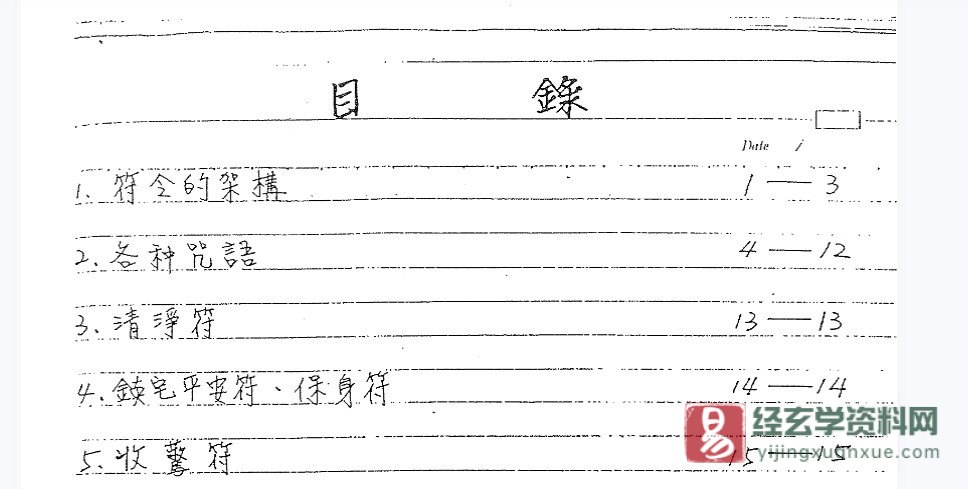 目 錄
Date /
1、符令的架構 1—3
2、各种咒語 4—12
3、清淨符 13—13
4、鎮宅平安符、保身符 14—14
5、收驚符 15—15
易 经玄学资料网
yijingxuanxue.com